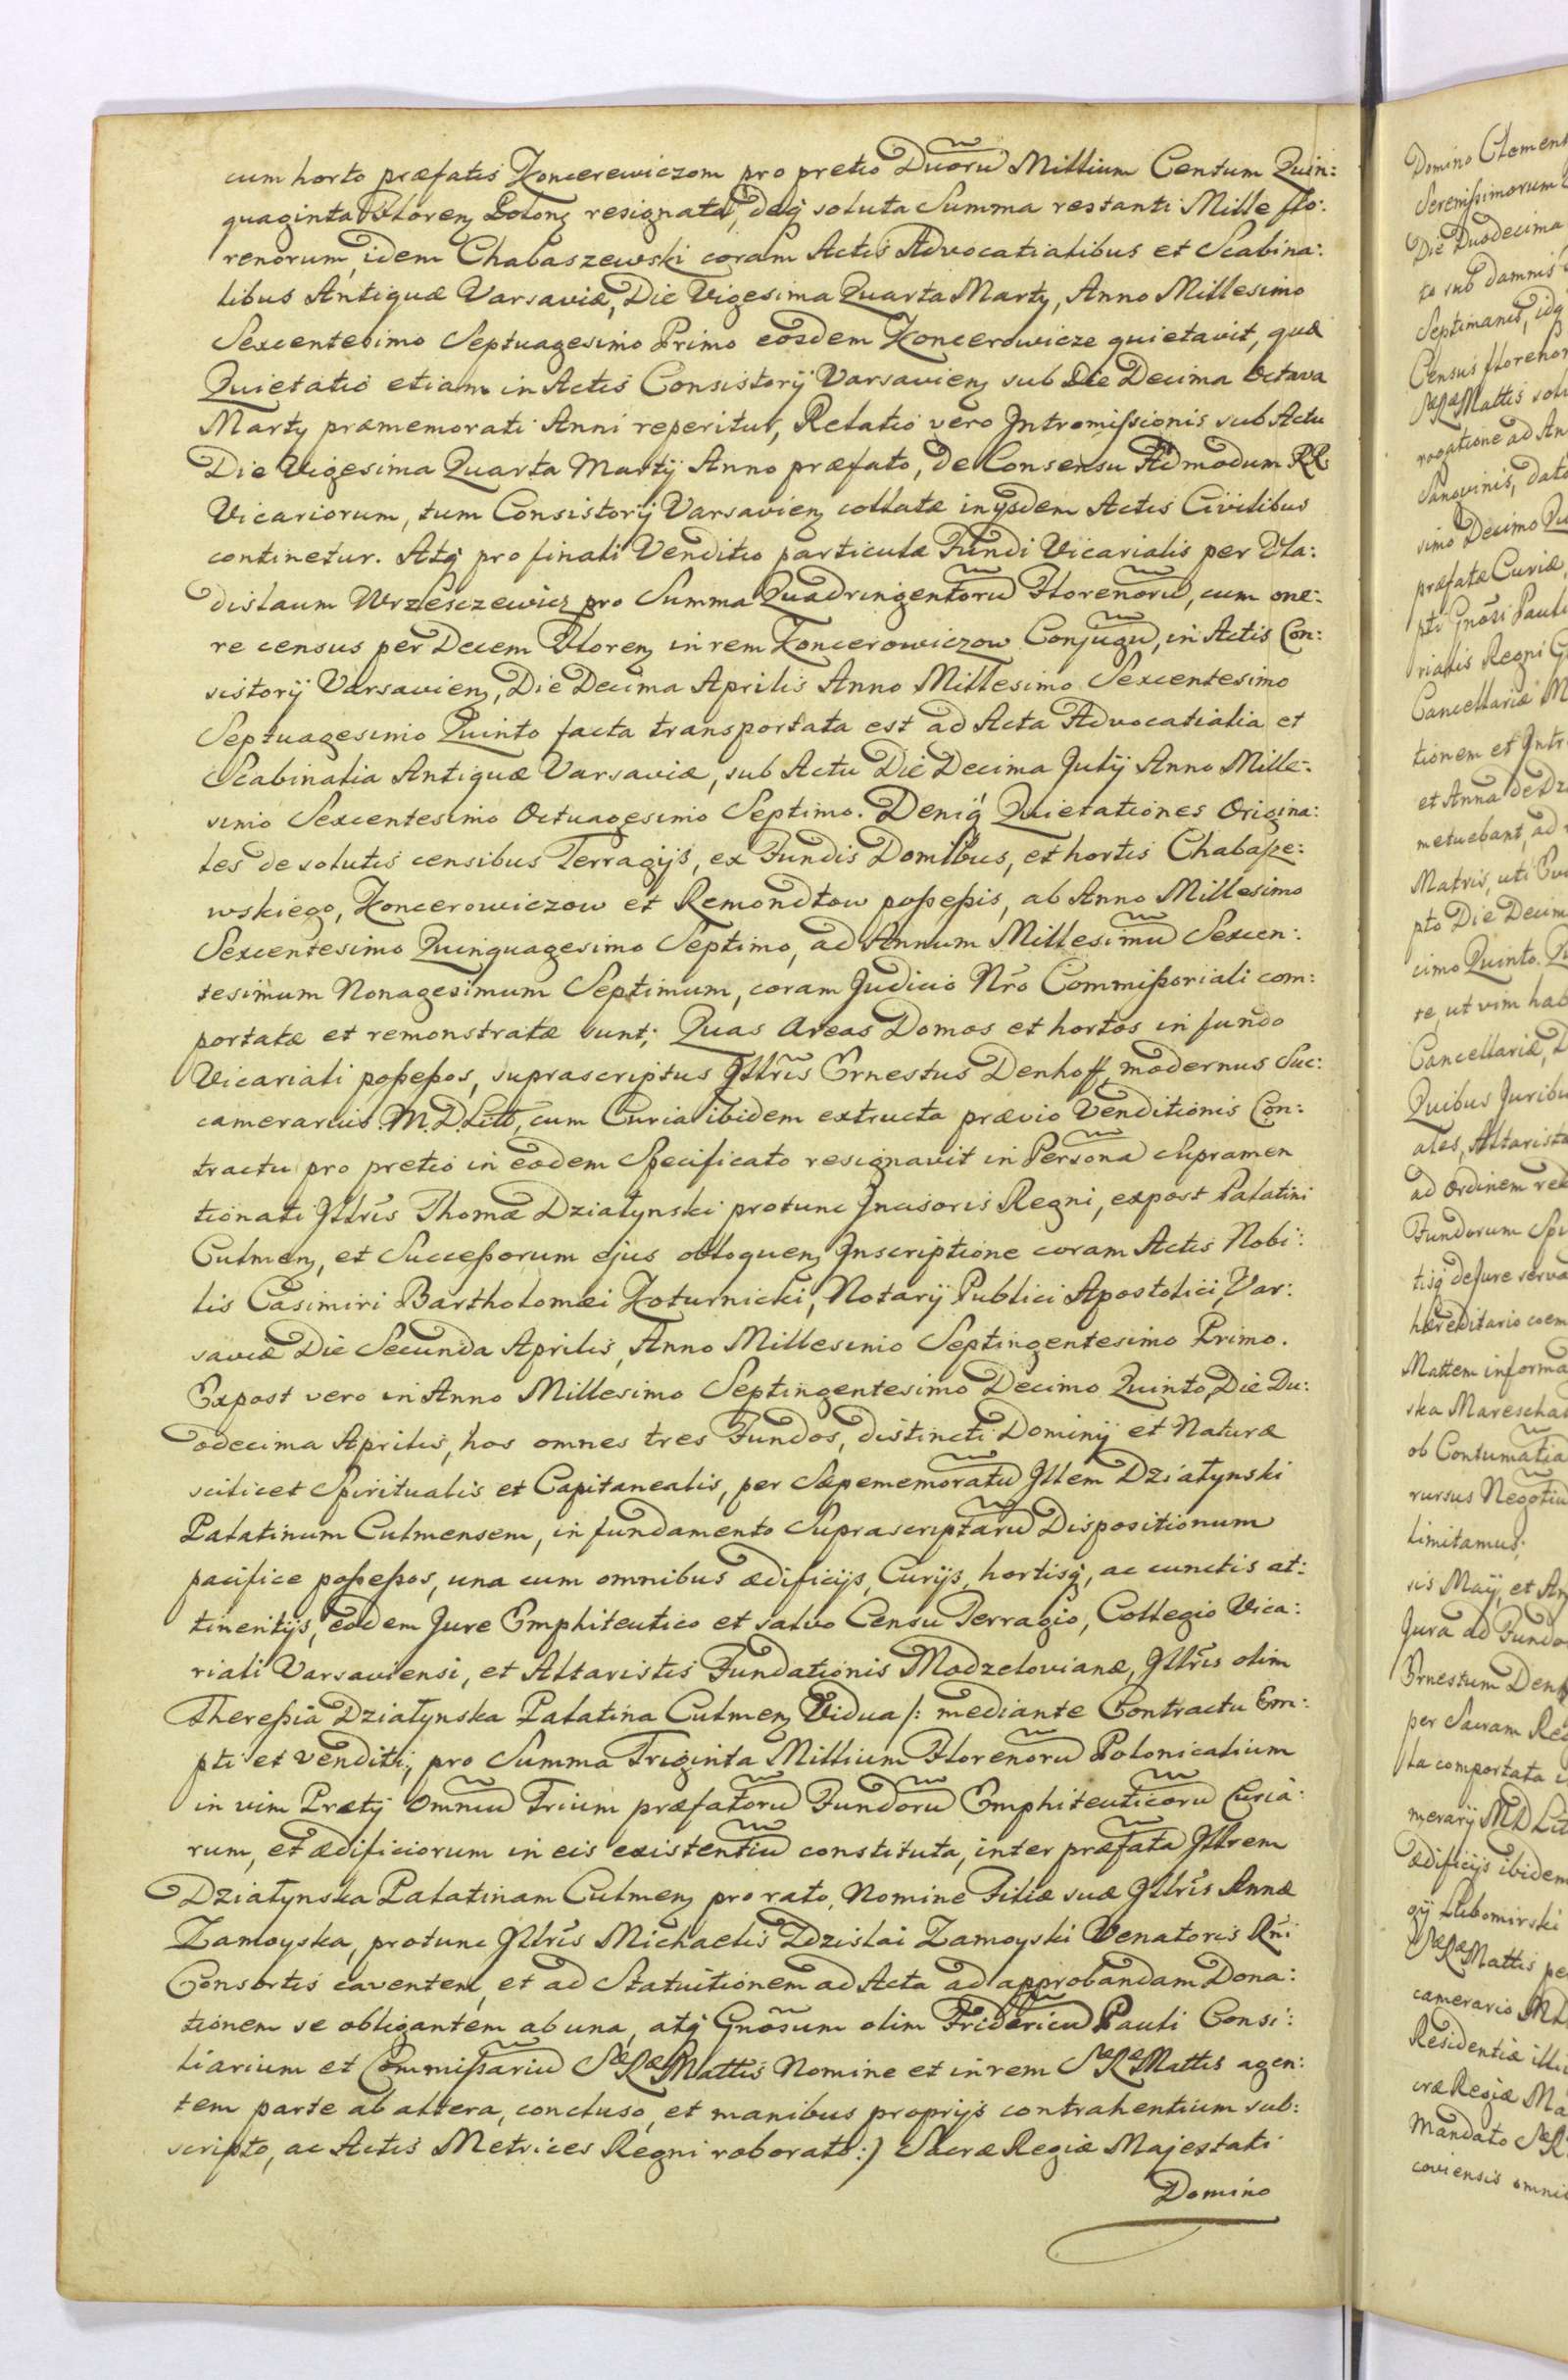 cum horto præfatis Koncerewiczom pro pretio Duorũ Millium Centum Quin:
quaginta Floren: Polon: resignata, deq; soluta Summa restanti Mille flo:
renorum, idem Chabaszewski coram Actis Advocatialibus et Scabina:
libus Antiquæ Varsaviæ, Die Vigesima Quarta Martÿ, Anno Millesimo
Sexcentesimo Septuagesimo Primo eosdem Koncerowicze quietavit, quæ
Quietatio etiam in Actis Consistorÿ Varsavien: sub Die Decima Octava
Martÿ præmemorati Anni reperitur, Relatio vero Intromissionis sub Actu
Die Vigesima Quarta Martÿ Anno præfato, de Consensu Admodum RR:
Vicariorum, tum Consistorÿ Varsavien: collatæ in ÿsdem Actis Civilibus
continetur. Atq; pro finali Venditio particulæ Fundi Vicarialis per Vla:
dislaum Wrzesczewicz pro Summa Quadringentorũ Florenorũ, cum one:
re census per Decem Floren: in rem Koncerowiczow Conjugũ, in Actis Con:
sistorÿ Varsavien:, Die Decima Aprilis Anno Millesimo Sexcentesimo
Septuagesimo Quinto facta transportata est ad Acta Advocatialia et
Scabinalia Antiquæ Varsaviæ, sub Actu Die Decima Julÿ Anno Mille:
simo Sexcentesimo Octuagesimo Septimo. Deniq; Quietationes Origina:
les de solutis censibus Terragÿs, ex Fundis Domibus, et hortis Chabasze:
wskiego, Koncerowiczow et Remondtow possessis, ab Anno Millesimo
Sexcentesimo Quinquagesimo Septimo, ad Annum Millesimũ Sexcen:
tesimum Nonagesimum Septimum, coram Judicio Nr̃o Commissoriali com:
portatæ et remonstratæ sunt; Quas Areas Domos et hortos in fundo
Vicariali possessos, suprascriptus Illr̃is Ernestus Denhoff modernus Suc:
camerarius M.D.Litt, cum Curia ibidem extructa prævio Venditionis Con:
tractu pro pretio in eodem Specificato resignavit in Personã Supramen
tionati Illr̃is Thomæ Działynski protunc Incisoris Regni, expost Palatini
Culmen:, et Successorum ejus obloquen: Inscriptione coram Actis Nobi:
lis Casimiri Bartholomæi Koturnicki, Notarÿ Publici Apostolici, Var:
saviæ Die Secunda Aprilis, Anno Millesimo Septingentesimo Primo.
Expost vero in Anno Millesimo Septingentesimo Decimo Quinto, Die Du:
odecima Aprilis, hos omnes tres Fundos, distincti Dominÿ et Naturæ
scilicet Spiritualis et Capitanealis, per Sæpememoratũ Illem Działynski
Palatinum Culmensem, in fundamento Suprascriptarũ Dispositionum
pacifice possessos, una cum omnibus ædificÿs, Curÿs, hortisq;, ac cunctis at:
tinentÿs, eodem Jure Emphiteutico et salvo Censu Terragio, Collegio Vica:
riali Varsaviensi, et Altaristis Fundationis Modzelovianæ, Illr̃is olim
Theressia Działynska Palatina Culmen: Vidua /: mediante Contractu Em:
pti et Venditi, pro Summa Triginta Millium Florenorũ Polonicalium
in vim Prætÿ Omniũ Trium præfatorũ Fundorũ Emphiteuticorũ Curia:
rum, et ædificiorum in eis existentiũ constituta, inter præfatã Illrem
Działynska Palatinam Culmen: pro rato, Nomine Filiæ suæ Illr̃is Annæ
Zamoyska, protunc Illr̃is Michaelis Zdzislai Zamoyski Venatoris Rñi
Consortis caventem, et ad Statuitionem ad Acta ad approbandam Dona:
tionem se obligantem ab una, atq; Gnõsum olim Fridericũ Pauli Consi:
liarium et Commissariũ Sæ Ræ Mattis Nomine et in rem Sæ Ræ Mattis agen:
tem parte ab altera, concluso, et manibus proprÿs contrahentium sub:
scripto, ac Actis Metrices Regni roborato :/ Sacræ Regiæ Majestati
Domino
Domino Clemens
Serenissimorum
Die Duodecima
to sub damnis
Septimanis, idq
Census floreno
Sæ Ræ Mattis
rogatione ad An
Sanguinis, dato
simo Decimo Qu
præfatæ Curiæ
pti Gnõsi Pauli
rialis Regni
Cancellariæ M
tionem et Intr
et Anna de Dzi
metuebant, ad
Matris, uti
pto Die Decim
cimo Quinto. Qu
re, ut vim hab
Cancellariæ,
Quibus Juribu
ales, Altarist
ad Ordinem re
Fundorum Spi
tisq; de Jure serva
hæreditario coem
Mattem informa
ska Mareschal
ob Contumatia
rursus Negotiũ
limitamus;
sis Maÿ, et An
Jura ad Fundo
Ernestum Denh
per Sacram Reg
ta comportata
merarÿ MD Lit
ædificÿs ibidem
Lubomirski
Sæ Ræ Mattis pe
camerario MD
Residentiæ illi
cræ Regiæ Ma
Mandato
coviensis omni